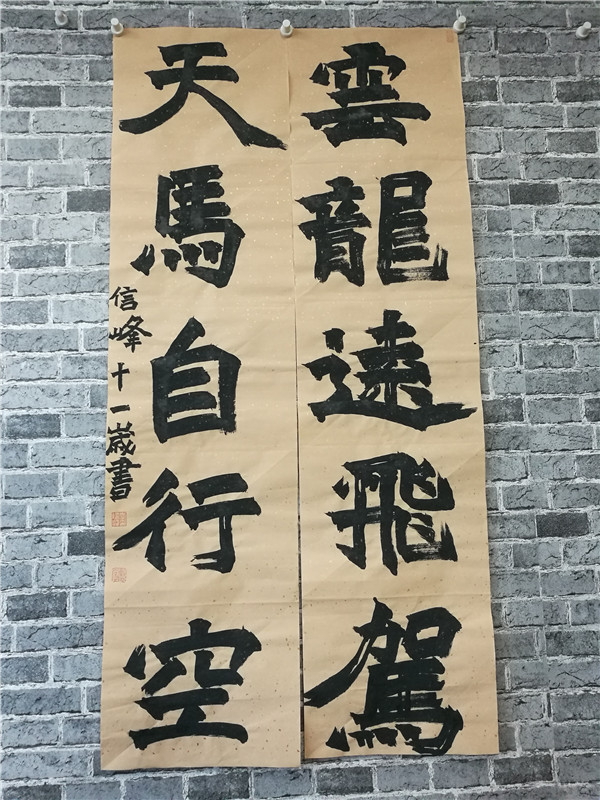 雲龍遠飛駕
天馬自行空
信峰十一歲書